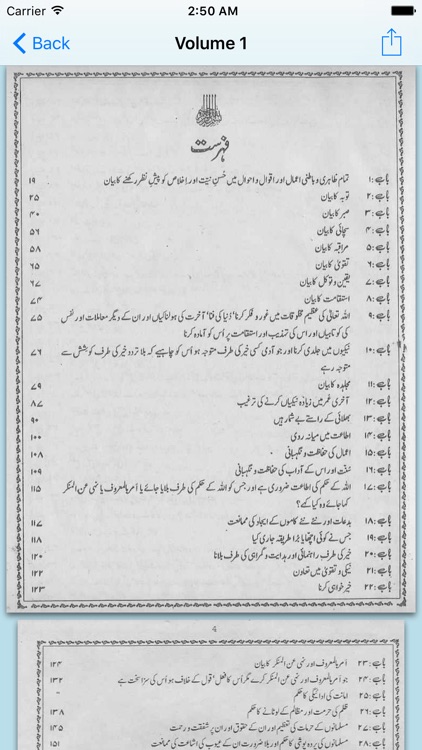 Carrier 2:50 AM
Back Volume 1
فہرست
باب: ۱ تمام ظاہری و باطنی اعمال اور اقوال و احوال میں حسنِ نیت اور اخلاص کو پیشِ نظر رکھنے کا بیان ۱۹
باب: ۲ توبہ کا بیان ۲۵
باب: ۳ صبر کا بیان ۴۰
باب: ۴ سچائی کا بیان ۵۶
باب: ۵ مراقبہ کا بیان ۵۸
باب: ۶ تقویٰ کا بیان ۶۵
باب: ۷ یقین و توکل کا بیان ۶۷
باب: ۸ استقامت کا بیان ۷۴
باب: ۹ اللہ تعالیٰ کی عظیم مخلوقات میں غور و فکر کرنا، دنیا کی فنا، آخرت کی ہولناکیاں اور ان کے دیگر معاملات اور نفس ۷۵
کی کوتاہیاں اور اس کی تہذیب اور استقامت پر اُس کو آمادہ کرنا
باب: ۱۰ نیکیوں میں جلدی کرنا اور جو آدمی کسی خیر کی طرف متوجہ ہو اُس کو چاہیے کہ بلا تردد خیر کی طرف کوشش سے ۷۶
متوجہ رہے
باب: ۱۱ مجاہدہ کا بیان ۷۹
باب: ۱۲ آخری عمر میں زیادہ نیکیاں کرنے کی ترغیب ۸۷
باب: ۱۳ بھلائی کے راستے بے شمار ہیں ۹۰
باب: ۱۴ اطاعت میں میانہ روی ۱۰۰
باب: ۱۵ اعمال کی حفاظت و نگہبانی ۱۰۸
باب: ۱۶ سنت اور اس کے آداب کی حفاظت و نگہبانی ۱۰۹
باب: ۱۷ اللہ کے حکم کی اطاعت ضروری ہے اور جس کو اللہ کے حکم کی طرف بلایا جائے یا امر بالمعروف یا نہی عن المنکر ۱۱۵
کہا جائے وہ کیا کہے؟
باب: ۱۸ بدعات اور نئے نئے کاموں کے ایجاد کی ممانعت ۱۱۷
باب: ۱۹ جس نے کوئی اچھا یا بُرا طریقہ جاری کیا ۱۱۸
باب: ۲۰ خیر کی طرف راہنمائی اور ہدایت و گمراہی کی طرف بلانا ۱۲۰
باب: ۲۱ نیکی و تقویٰ میں تعاون ۱۲۲
باب: ۲۲ خیر خواہی کرنا ۱۲۳
4
باب: ۲۳ امر بالمعروف اور نہی عن المنکر کا بیان ۱۲۴
باب: ۲۴ جو امر بالمعروف اور نہی عن المنکر کرے مگر اُس کا فعل قول کے خلاف ہو اُس کی سزا سخت ہے ۱۳۲
باب: ۲۵ امانت کی ادائیگی کا حکم
باب: ۲۶ ظلم کی حرمت اور مظالم کے لوٹانے کا حکم ۱۳۸
باب: ۲۷ مسلمانوں کے حرمات کی تعظیم اور ان کے حقوق اور ان پر شفقت و رحمت ۱۴۵
باب: ۲۸ مسلمانوں کی پردہ پوشی کا حکم اور بلا ضرورت ان کے عیوب کی اشاعت کی ممانعت ۱۵۱